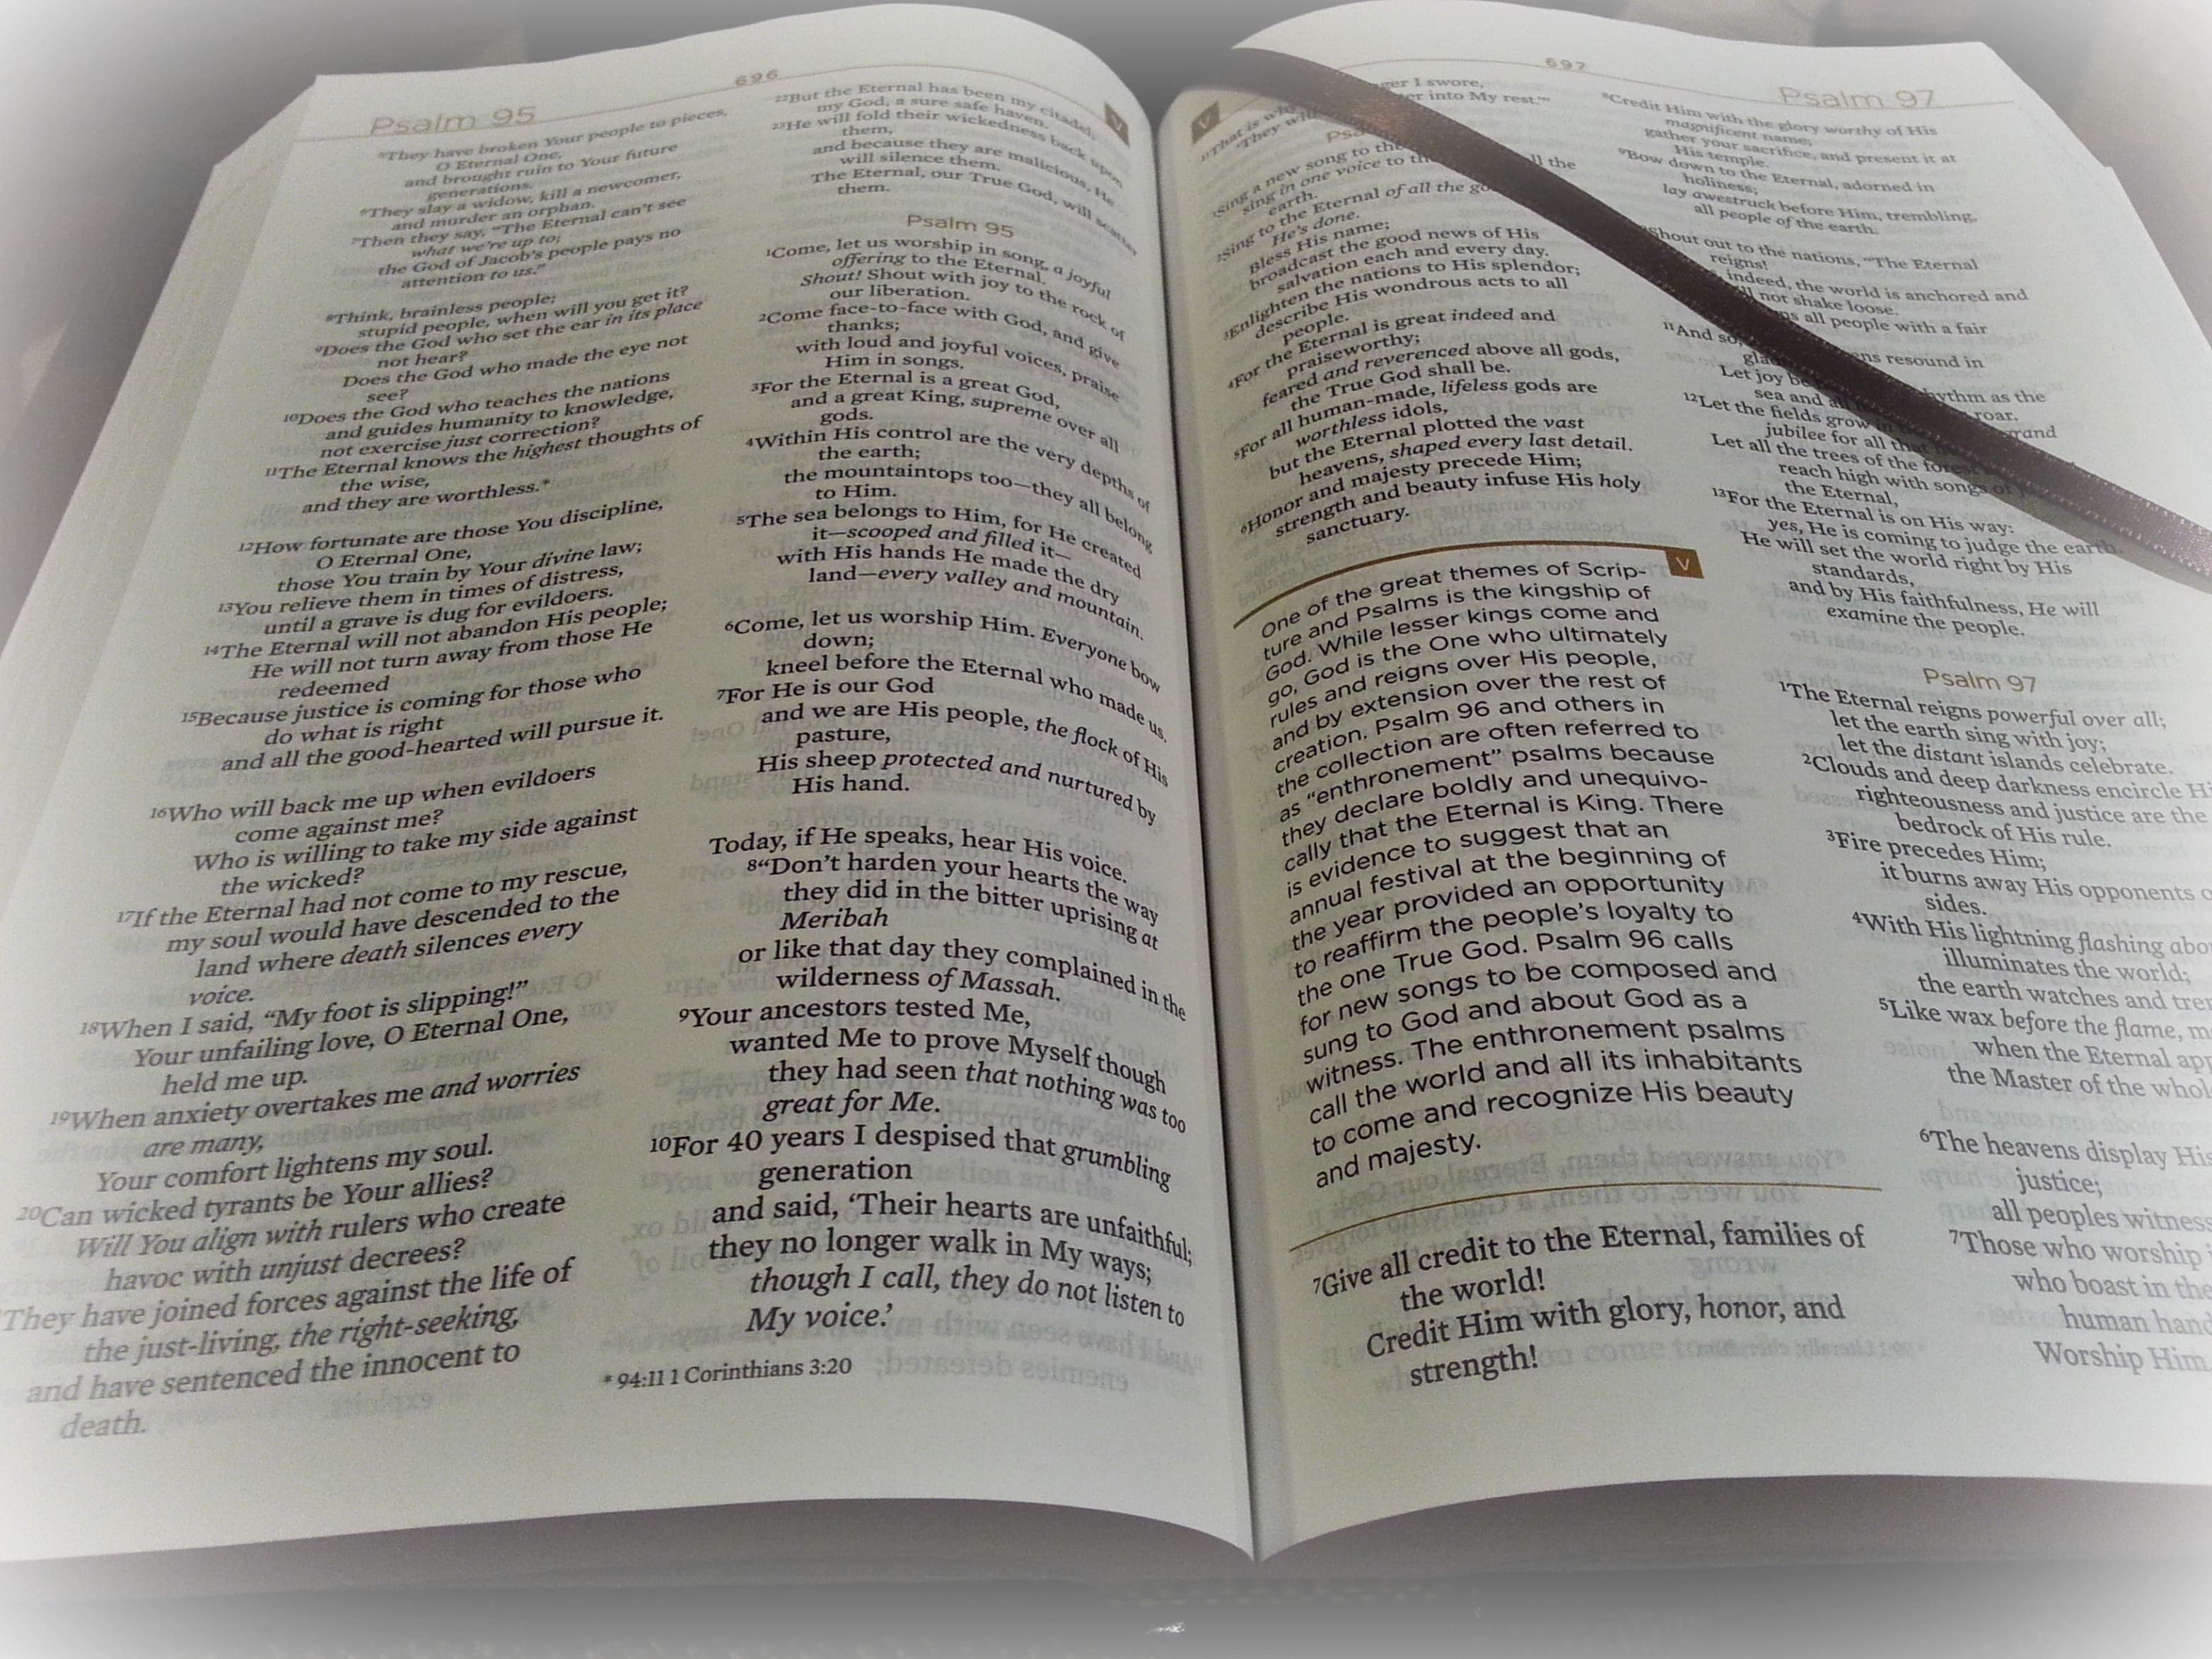 696
Psalm 95
⁵They have broken Your people to pieces,
O Eternal One,
and brought ruin to Your future
generations.
⁶They slay a widow, kill a newcomer,
and murder an orphan.
⁷Then they say, “The Eternal can’t see
what we’re up to;
the God of Jacob’s people pays no
attention to us.”
⁸Think, brainless people;
stupid people, when will you get it?
⁹Does the God who set the ear in its place
not hear?
Does the God who made the eye not
see?
¹⁰Does the God who teaches the nations
and guides humanity to knowledge,
not exercise just correction?
¹¹The Eternal knows the highest thoughts of
the wise,
and they are worthless.*
¹²How fortunate are those You discipline,
O Eternal One,
those You train by Your divine law;
¹³You relieve them in times of distress,
until a grave is dug for evildoers.
¹⁴The Eternal will not abandon His people;
He will not turn away from those He
redeemed
¹⁵Because justice is coming for those who
do what is right
and all the good-hearted will pursue it.
¹⁶Who will back me up when evildoers
come against me?
Who is willing to take my side against
the wicked?
¹⁷If the Eternal had not come to my rescue,
my soul would have descended to the
land where death silences every
voice.
¹⁸When I said, “My foot is slipping!”
Your unfailing love, O Eternal One,
held me up.
¹⁹When anxiety overtakes me and worries
are many,
Your comfort lightens my soul.
²⁰Can wicked tyrants be Your allies?
Will You align with rulers who create
havoc with unjust decrees?
They have joined forces against the life of
the just-living, the right-seeking,
and have sentenced the innocent to
death.
²²But the Eternal has been my citadel,
my God, a sure safe haven.
²³He will fold their wickedness back upon
them,
and because they are malicious, He
will silence them.
The Eternal, our True God, will scatter
them.
Psalm 95
¹Come, let us worship in song, a joyful
offering to the Eternal.
Shout! Shout with joy to the rock of
our liberation.
²Come face-to-face with God, and give
thanks;
with loud and joyful voices, praise
Him in songs.
³For the Eternal is a great God,
and a great King, supreme over all
gods.
⁴Within His control are the very depths of
the earth;
the mountaintops too—they all belong
to Him.
⁵The sea belongs to Him, for He created
it—scooped and filled it—
with His hands He made the dry
land—every valley and mountain.
⁶Come, let us worship Him. Everyone bow
down;
kneel before the Eternal who made us.
⁷For He is our God
and we are His people, the flock of His
pasture,
His sheep protected and nurtured by
His hand.
Today, if He speaks, hear His voice.
⁸“Don’t harden your hearts the way
they did in the bitter uprising at
Meribah
or like that day they complained in the
wilderness of Massah.
⁹Your ancestors tested Me,
wanted Me to prove Myself though
they had seen that nothing was too
great for Me.
¹⁰For 40 years I despised that grumbling
generation
and said, ‘Their hearts are unfaithful;
they no longer walk in My ways;
though I call, they do not listen to
My voice.’
* 94:11 1 Corinthians 3:20
V
V
697
Psalm 97
¹¹That is why I swore,
“They will into My rest.”
¹Sing a new song to the
sing in one voice to the all the
earth.
²Sing to the Eternal of all the
He’s done.
Bless His name;
broadcast the good news of His
salvation each and every day.
³Enlighten the nations to His splendor;
describe His wondrous acts to all
people.
⁴For the Eternal is great indeed and
praiseworthy;
feared and reverenced above all gods,
the True God shall be.
⁵For all human-made, lifeless gods are
worthless idols,
but the Eternal plotted the vast
heavens, shaped every last detail.
⁶Honor and majesty precede Him;
strength and beauty infuse His holy
sanctuary.
V
One of the great themes of Scrip-
ture and Psalms is the kingship of
God. While lesser kings come and
go, God is the One who ultimately
rules and reigns over His people,
and by extension over the rest of
creation. Psalm 96 and others in
the collection are often referred to
as “enthronement” psalms because
they declare boldly and unequivo-
cally that the Eternal is King. There
is evidence to suggest that an
annual festival at the beginning of
the year provided an opportunity
to reaffirm the people’s loyalty to
the one True God. Psalm 96 calls
for new songs to be composed and
sung to God and about God as a
witness. The enthronement psalms
call the world and all its inhabitants
to come and recognize His beauty
and majesty.
⁷Give all credit to the Eternal, families of
the world!
Credit Him with glory, honor, and
strength!
⁸Credit Him with the glory worthy of His
magnificent name;
gather your sacrifice, and present it at
His temple.
⁹Bow down to the Eternal, adorned in
holiness;
lay awestruck before Him, trembling,
all people of the earth.
Shout out to the nations, “The Eternal
reigns!
indeed, the world is anchored and
not shake loose.
all people with a fair
¹¹And so,
resound in
Let joy
rhythm as the
sea and all roar.
¹²Let the fields grow grand
jubilee for all that
Let all the trees of the forest
reach high with songs of
the Eternal,
¹³For the Eternal is on His way:
yes, He is coming to judge the earth.
He will set the world right by His
standards,
and by His faithfulness, He will
examine the people.
Psalm 97
¹The Eternal reigns powerful over all;
let the earth sing with joy;
let the distant islands celebrate.
²Clouds and deep darkness encircle
righteousness and justice are the
bedrock of His rule.
³Fire precedes Him;
it burns away His opponents
sides.
⁴With His lightning flashing
illuminates the world;
the earth watches and
⁵Like wax before the flame,
when the Eternal
the Master of the
⁶The heavens display His
justice;
all peoples witness
⁷Those who worship
who boast in the
human
Worship Him